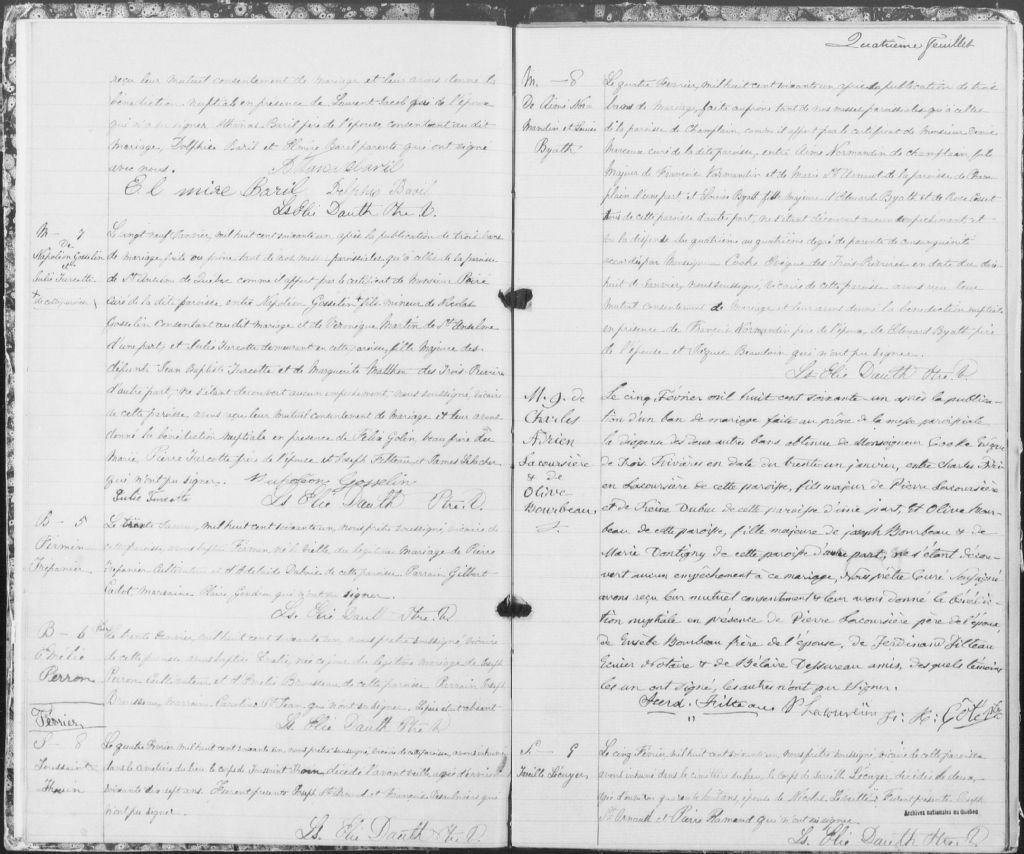 reçu leur mutuel consentement de mariage et leur avons donné la
bénédiction nuptiale en présence de Laurent Jacob qui de l'époux
qui n'a pu signer Athanas Baril père de l'épouse, consentant au dit
mariage, Dolphis Baril et Elmire Baril parents qui ont signé
avec nous. Athanas Baril
Elmire Baril Dolphis Baril
Ls Elie Dauth Ptre V.
M - 7
De
Napoléon Gosselin
et
Julie Turcotte
Le vingt neuf Janvier, mil huit cent soixante un, après la publication de trois bans
de mariage, faite au prône tant de nos messes paroissiales qu'à celles de la paroisse
de St Anselme de Québec comme il appert par le certificat de Monsieur Poiré
curé de la dite paroisse, entre Napoléon Gosselin + fils mineur de Nicolas
Gosselin consentant au dit mariage et de Véronique Martin de St Anselme
d'une part, et Julie Turcotte demeurant en cette paroisse, fille majeure des
défunts Jean Baptiste Turcotte et de Marguerite Matthon des Trois Rivières
d'autre part, ne s'étant découvert aucun empêchement, nous soussigné, vicaire
de cette paroisse, avons reçu leur mutuel consentement de mariage et leur avons
donné la bénédiction nuptiale en présence de Félix Golin, beau frère du
Marié, Pierre Turcotte frère de l'épouse et Joseph Filteau et James
qui n'ont pu signer. Napoléon Gosselin
Julie Turcotte Ls Elie Dauth Ptre V.
B - 5
Firmin
Trépanier
Le trente Janvier, mil huit cent soixante un, nous prêtre soussigné, vicaire de
cette paroisse, avons baptisé Firmin, né la veille, du légitime mariage de Pierre
Trépanier Cultivateur et d'Adelaïde Dubois de cette paroisse. Parrain, Gilbert
Cadot Marraine qui n'ont su signer.
Ls. Elie Dauth Ptre V.
B - 6
Emélie
Perron
Le trente Janvier, mil huit cent soixante un, nous prêtre soussigné, vicaire
de cette paroisse, avons baptisé Emélie, née ce jour, du légitime mariage de Joseph
Perron Cultivateur et d'Emélie Brousseau de cette paroisse. Parrain Joseph
Brousseau, Marraine Caroline St Jean, qui n'ont su signer. Le père était absent
Ls Elie Dauth Ptre V.
Février
S - 8
Toussaint
Thouin
Le quatre Février, mil huit cent soixante un, nous prêtre soussigné, vicaire de cette paroisse, avons inhumé
dans le cimetière du lieu, le corps de Toussaint Thouin, décédé l'avant veille agé d'environ
soixante dix sept ans. Furent présents Joseph St Arnaud et François Desaulniers qui
n'ont pu signer.
Ls. Elie Dauth Ptre V.
Quatrième feuillet
M. - 8
De Aimé Nor
mandin et Louise
Byath
Le quatre Février, mil huit cent soixante un, après la publication de trois
bans de mariage, faite au prône tant de nos messes paroissiales qu'à celles
de la paroisse de Champlain, comme il appert par le certificat de Monsieur Denis
Marcoux curé de la dite paroisse, entre Aimé Normandin de Champlain, fils
Majeur de François Normandin et de Marie St Arnaud de la paroisse de Cham
plain d'une part, et Louise Byath fille majeure d'Edward Byath et de Rose
de cette paroisse d'autre part, ne s'étant découvert aucun empêchement et
vu la dispense du quatrième au quatrième degré de parenté de consanguinité
accordée par Monseigneur Cooke Evêque des Trois-Rivières en date du dix
huit de Janvier, nous soussigné, vicaire de cette paroisse avons reçu leur
mutuel consentement de mariage et leur avons donné la bénédiction nuptiale
en présence de François Normandin père de l'époux, de Edward Byath père
de l'épouse et Beaudoin qui n'ont pu signer.
Ls Elie Dauth Ptre V.
M. 9. de
Charles
Adrien
Lacoursière
& de
Olive
Bourbeau
Le cinq Février mil huit cent soixante un après la publica-
tion d'un ban de mariage faite au prône de la messe paroissiale
la dispense des deux autres bans obtenue de Monseigneur Cooke Evêque
de Trois Rivières en date du trente un janvier, entre Charles Adri-
en Lacoursière de cette paroisse, fils majeur de Pierre Lacoursière
et de Dubuc de cette paroisse d'une part, et Olive Bour-
beau de cette paroisse, fille majeure de joseph Bourbeau & de
Marie Dontigny de cette paroisse d'autre part, ne s'étant décou-
vert aucun empêchement à ce mariage, Nous prêtre Curé Soussigné
avons reçu leur mutuel consentement & leur avons donné la bénédic-
tion nuptiale en présence de Pierre Lacoursière père de l'époux,
de Eusèbe Bourbeau frère de l'épouse, de Ferdinand Filteau
Ecuier Notaire & de Bélaire Dessureau amis, desquels témoins
les un ont signé, les autres n'ont pu signer.
Ferd. Filteau P Lacoursière Fr. H. Côté Ptre
S. - 9
Le cinq Février, mil huit cent soixante un, nous prêtre soussigné, vicaire de cette paroisse
avons inhumé dans le cimetière du lieu, le corps de décédée de deux
jours, épouse de Nicolas Furent présents Joseph
St Arnault et Pierre Raimond qui n'ont su signer.
Archives nationales du Québec
Ls. Elie Dauth Ptre V.